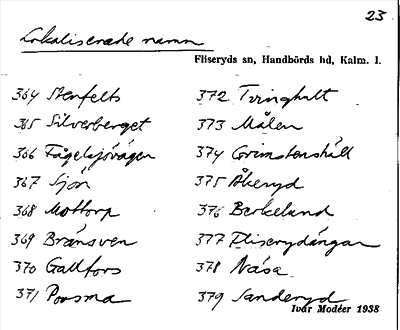 23
Lokaliserade namn
Fliseryds sn, Handbörds hd, Kalm. l.
364 Stenfelts
365 Silverberget
366 Fågelsjövägen
367 Sjön
368 Mottorp
369 Bränsven
370 Gallfors
371 Pousma
372 Tvinghult
373 Målen
374 Grimstenshäll
375 Åkeryd
376 Berkelund
377 Fliserydängar
378 Näsa
379 Sanderyd
Ivar Modéer 1938